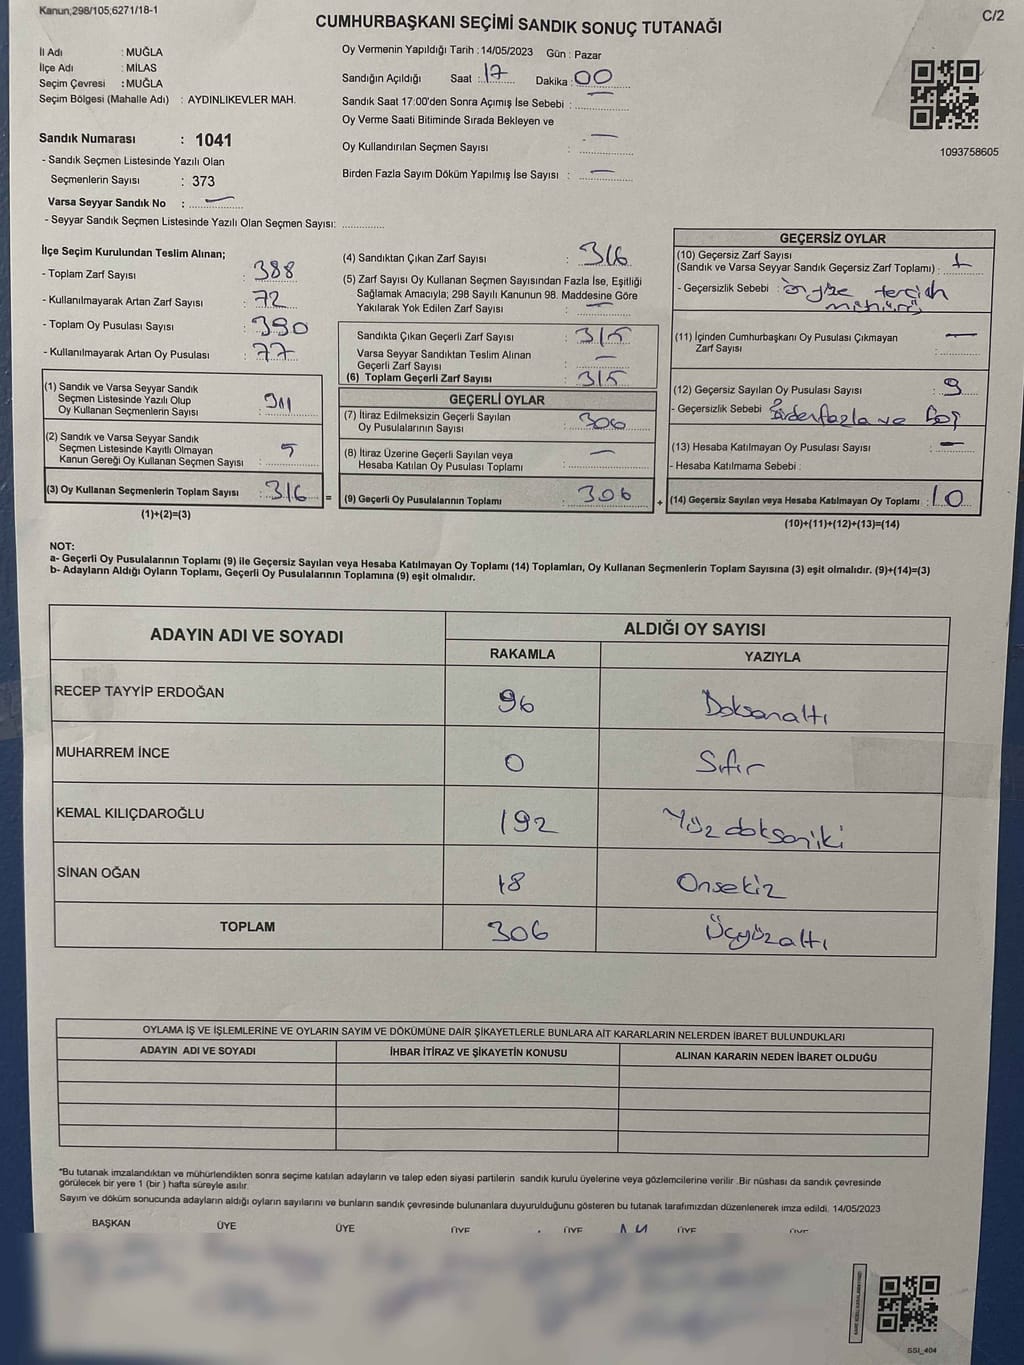 Kanun;298/105,6271/18-1
C/2
CUMHURBAŞKANI SEÇİMİ SANDIK SONUÇ TUTANAĞI
İl Adı : MUĞLA
İlçe Adı : MİLAS
Seçim Çevresi : MUĞLA
Seçim Bölgesi (Mahalle Adı) : AYDINLIKEVLER MAH.
Sandık Numarası : 1041
- Sandık Seçmen Listesinde Yazılı Olan
Seçmenlerin Sayısı : 373
Varsa Seyyar Sandık No : —
- Seyyar Sandık Seçmen Listesinde Yazılı Olan Seçmen Sayısı:
Oy Vermenin Yapıldığı Tarih : 14/05/2023 Gün : Pazar
Sandığın Açıldığı Saat : 17 Dakika : 00
Sandık Saat 17:00'den Sonra Açımış İse Sebebi : —
Oy Verme Saati Bitiminde Sırada Bekleyen ve
Oy Kullandırılan Seçmen Sayısı : —
Birden Fazla Sayım Döküm Yapılmış İse Sayısı : —
1093758605
İlçe Seçim Kurulundan Teslim Alınan;
- Toplam Zarf Sayısı : 388
- Kullanılmayarak Artan Zarf Sayısı : 72
- Toplam Oy Pusulası Sayısı : 390
- Kullanılmayarak Artan Oy Pusulası : 77
(1) Sandık ve Varsa Seyyar Sandık
Seçmen Listesinde Yazılı Olup
Oy Kullanan Seçmenlerin Sayısı : 311
(2) Sandık ve Varsa Seyyar Sandık
Seçmen Listesinde Kayıtlı Olmayan
Kanun Gereği Oy Kullanan Seçmen Sayısı : 5
(3) Oy Kullanan Seçmenlerin Toplam Sayısı : 316
(1)+(2)=(3)
=
(4) Sandıktan Çıkan Zarf Sayısı : 316
(5) Zarf Sayısı Oy Kullanan Seçmen Sayısından Fazla İse, Eşitliği
Sağlamak Amacıyla; 298 Sayılı Kanunun 98. Maddesine Göre
Yakılarak Yok Edilen Zarf Sayısı : —
Sandıkta Çıkan Geçerli Zarf Sayısı : 315
Varsa Seyyar Sandıktan Teslim Alınan
Geçerli Zarf Sayısı : —
(6) Toplam Geçerli Zarf Sayısı : 315
GEÇERLİ OYLAR
(7) İtiraz Edilmeksizin Geçerli Sayılan
Oy Pusulalarının Sayısı : 306
(8) İtiraz Üzerine Geçerli Sayılan veya
Hesaba Katılan Oy Pusulası Toplamı : —
(9) Geçerli Oy Pusulalarının Toplamı : 306
+
GEÇERSİZ OYLAR
(10) Geçersiz Zarf Sayısı
(Sandık ve Varsa Seyyar Sandık Geçersiz Zarf Toplamı) : 1
- Geçersizlik Sebebi : tercih
mühürü
(11) İçinden Cumhurbaşkanı Oy Pusulası Çıkmayan
Zarf Sayısı : —
(12) Geçersiz Sayılan Oy Pusulası Sayısı : 9
- Geçersizlik Sebebi : Birden fazla ve Boş
(13) Hesaba Katılmayan Oy Pusulası Sayısı : —
- Hesaba Katılmama Sebebi :
(14) Geçersiz Sayılan veya Hesaba Katılmayan Oy Toplamı : 10
(10)+(11)+(12)+(13)=(14)
NOT:
a- Geçerli Oy Pusulalarının Toplamı (9) ile Geçersiz Sayılan veya Hesaba Katılmayan Oy Toplamı (14) Toplamları, Oy Kullanan Seçmenlerin Toplam Sayısına (3) eşit olmalıdır. (9)+(14)=(3)
b- Adayların Aldığı Oyların Toplamı, Geçerli Oy Pusulalarının Toplamına (9) eşit olmalıdır.
ADAYIN ADI VE SOYADI
ALDIĞI OY SAYISI
RAKAMLA YAZIYLA
RECEP TAYYİP ERDOĞAN 96 Doksanaltı
MUHARREM İNCE 0 Sıfır
KEMAL KILIÇDAROĞLU 192 Yüz doksaniki
SİNAN OĞAN 18 Onsekiz
TOPLAM 306 Üçyüzaltı
OYLAMA İŞ VE İŞLEMLERİNE VE OYLARIN SAYIM VE DÖKÜMÜNE DAİR ŞİKAYETLERLE BUNLARA AİT KARARLARIN NELERDEN İBARET BULUNDUKLARI
ADAYIN ADI VE SOYADI İHBAR İTİRAZ VE ŞİKAYETİN KONUSU ALINAN KARARIN NEDEN İBARET OLDUĞU
*Bu tutanak imzalandıktan ve mühürlendikten sonra seçime katılan adayların ve talep eden siyasi partilerin sandık kurulu üyelerine veya gözlemcilerine verilir .Bir nüshası da sandık çevresinde
görülecek bir yere 1 (bir ) hafta süreyle asılır.
Sayım ve döküm sonucunda adayların aldığı oyların sayılarını ve bunların sandık çevresinde bulunanlara duyurulduğunu gösteren bu tutanak tarafımızdan düzenlenerek imza edildi. 14/05/2023
BAŞKAN ÜYE ÜYE ÜYE ÜYE ÜYE ÜYE
SSI_404